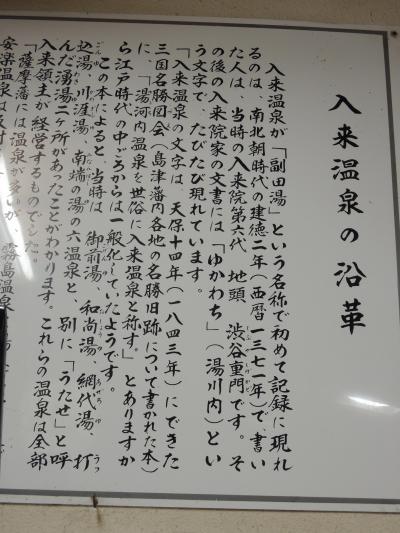 入来温泉の沿革
入来温泉が「副田湯」という名称で初めて記録に現れ
るのは、南北朝時代の建徳二年(西暦一三七一年)で、書い
た人は、当時の入来院第六代、地頭、渋谷重門です。そ
の後の入来院家の文書には「ゆかわち」(湯川内)とい
う文字で、たびたび現れています。
「入来温泉の文字は、天保十四年(一八四三年)にできた
三国名勝図会(島津藩内各地の名勝旧跡について書かれた本)
に、「湯河内温泉を世俗に入来温泉と称す。」とありますか
ら江戸時代の中ごろからは一般化していたようです。
この本によると、当時は、御前湯、和尚湯、網代湯、打
込湯、川涯湯、南端の湯の六温泉と、別に「うたせ」と呼
んだ湧湯二ヶ所があったことがわかります。これらの温泉は全部
入来領主が経営するものでした。
「薩摩藩には温泉が多いが、霧島温泉
安楽温泉は